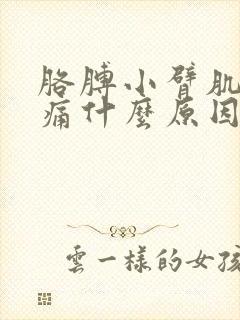 胳膊小臂肌
痛什麼原因
雲一樣的女孩